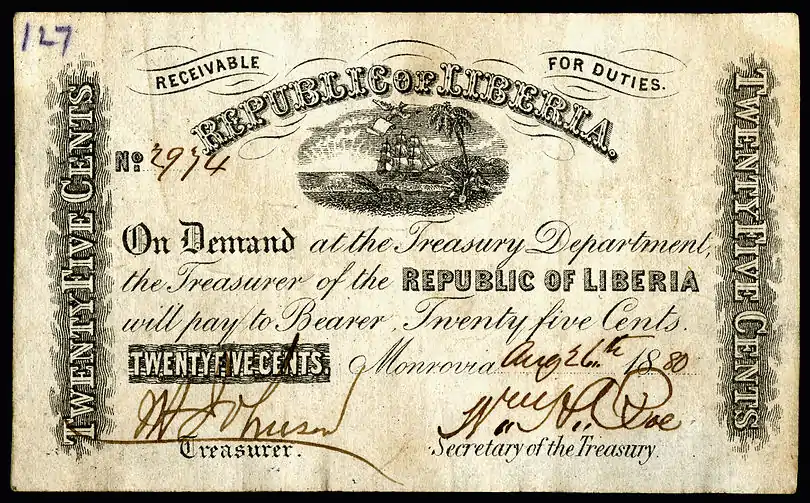 127
RECEIVABLE FOR DUTIES.
REPUBLIC OF LIBERIA.
TWENTY FIVE CENTS
TWENTY FIVE CENTS
No 2974
On Demand at the Treasury Department,
the Treasurer of the REPUBLIC OF LIBERIA
will pay to Bearer, Twenty five Cents.
TWENTY FIVE CENTS. Monrovia Aug 26th 1880
Johnson
Wm H. Roe
Treasurer. Secretary of the Treasury.